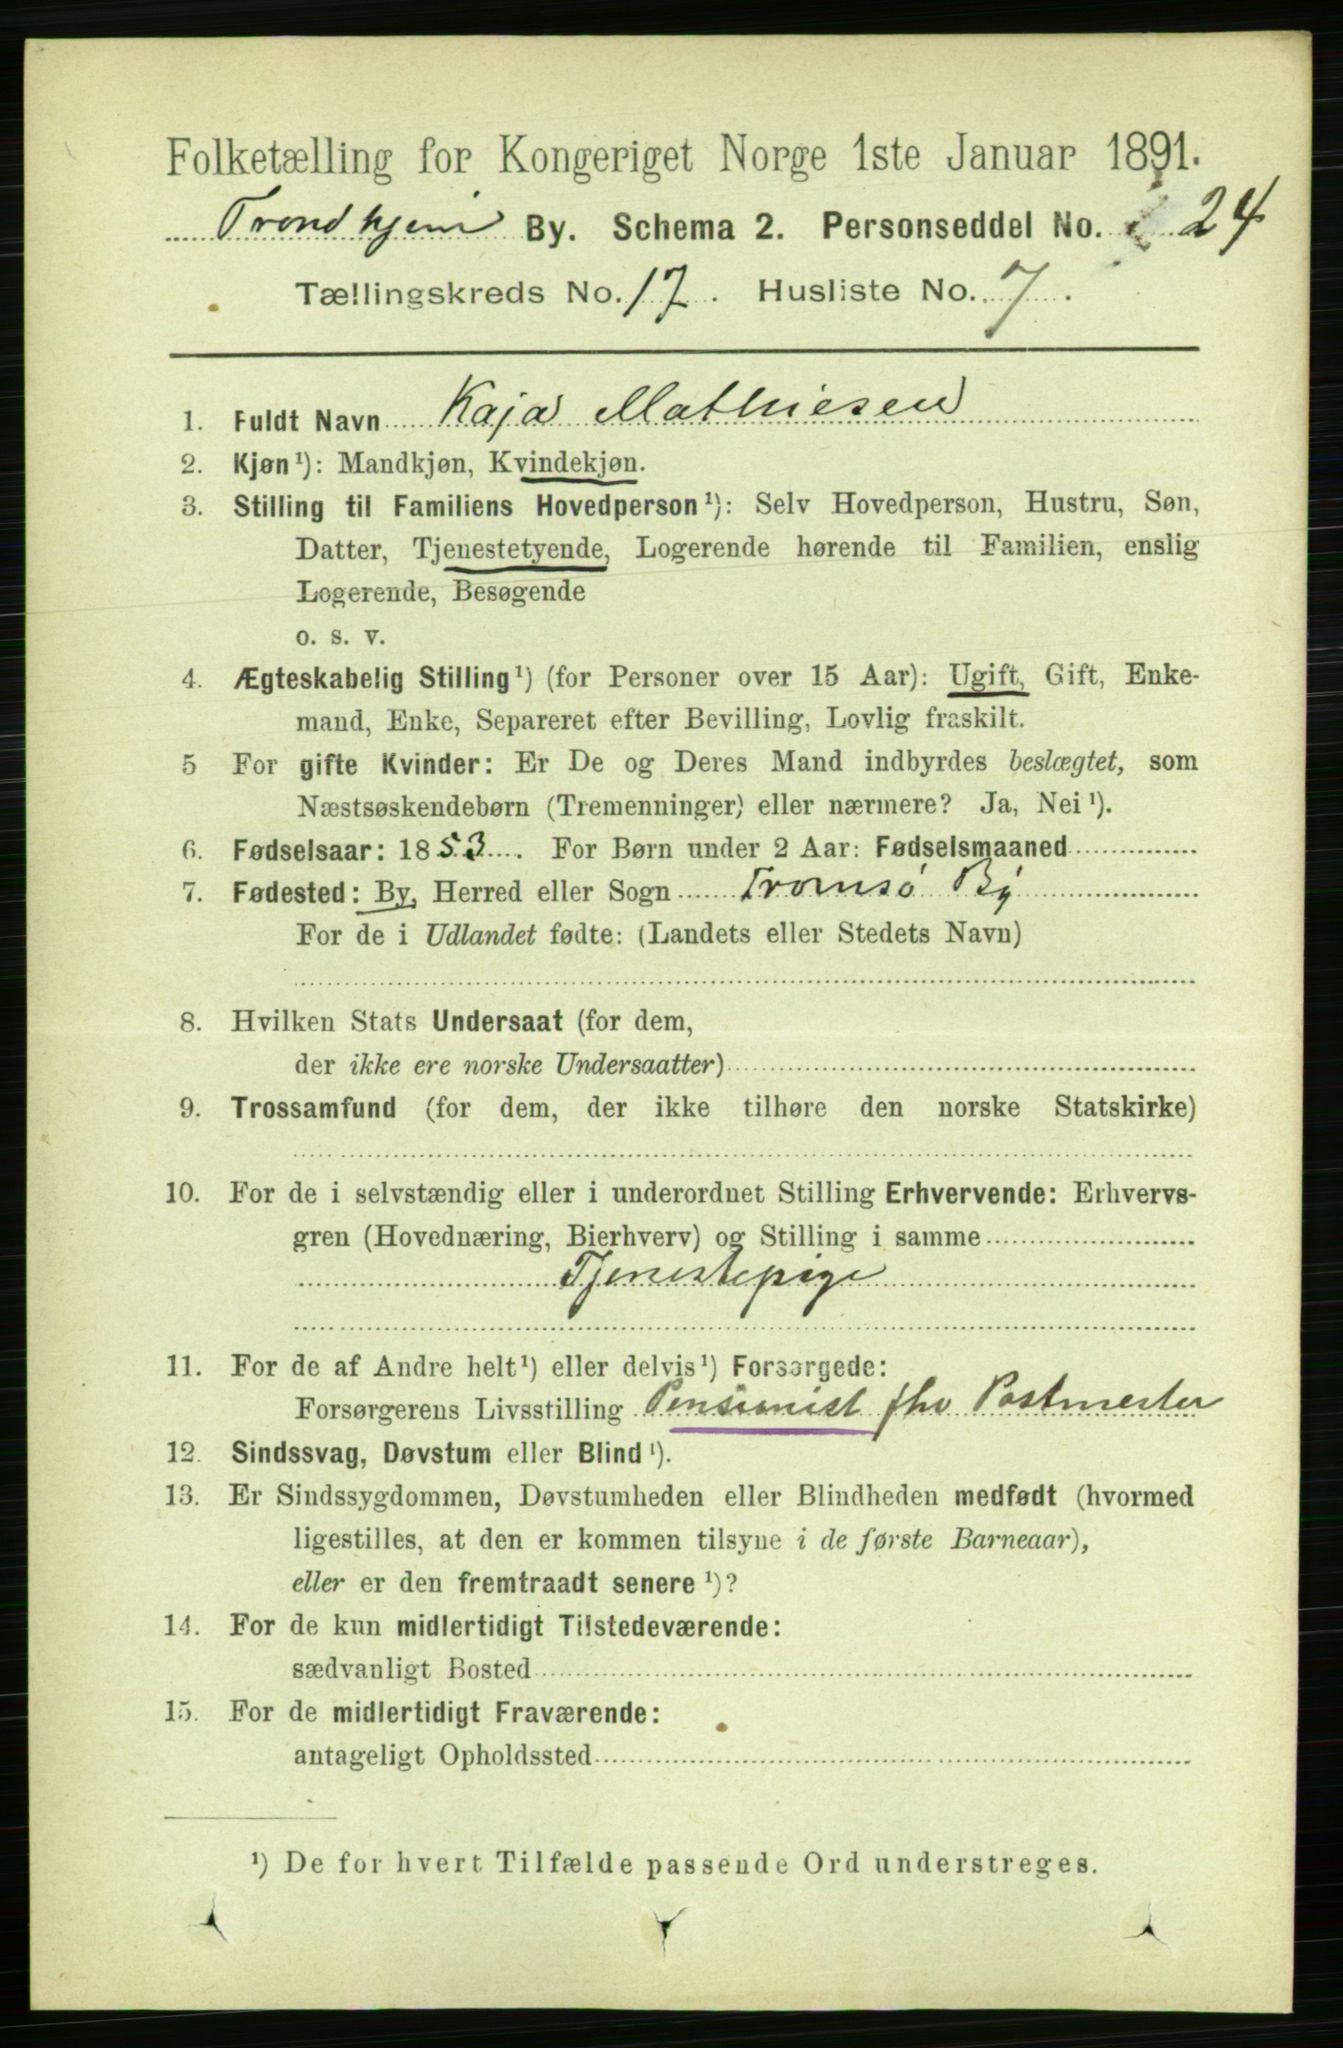 Folketælling for Kongeriget Norge 1ste Januar 1891.
Trondhjem By. Schema 2. Personseddel No. 24
Tællingskreds No. 17. Husliste No. 7.
1. Fuldt Navn Kaja Mathiesen
2. Kjøn ¹): Mandkjøn, Kvindekjøn.
3. Stilling til Familiens Hovedperson ¹): Selv Hovedperson, Hustru, Søn,
Datter, Tjenestetyende, Logerende hørende til Familien, enslig
Logerende, Besøgende
o. s. v.
4. Ægteskabelig Stilling ¹) (for Personer over 15 Aar): Ugift, Gift, Enke-
mand, Enke, Separeret efter Bevilling, Lovlig fraskilt.
5 For gifte Kvinder: Er De og Deres Mand indbyrdes beslægtet, som
Næstsøskendebørn (Tremenninger) eller nærmere? Ja, Nei ¹).
6. Fødselsaar: 1853. For Børn under 2 Aar: Fødselsmaaned
7. Fødested: By, Herred eller Sogn Tromsø By
For de i Udlandet fødte: (Landets eller Stedets Navn)
8. Hvilken Stats Undersaat (for dem,
der ikke ere norske Undersaatter)
9. Trossamfund (for dem, der ikke tilhøre den norske Statskirke)
10. For de i selvstændig eller i underordnet Stilling Erhvervende: Erhvervs-
gren (Hovednæring, Bierhverv) og Stilling i samme
Tjenestepige
11. For de af Andre helt ¹) eller delvis ¹) Forsørgede:
Forsørgerens Livsstilling Pensionist fhv Postmester
12. Sindssvag, Døvstum eller Blind ¹).
13. Er Sindssygdommen, Døvstumheden eller Blindheden medfødt (hvormed
ligestilles, at den er kommen tilsyne i de første Barneaar),
eller er den fremtraadt senere ¹)?
14. For de kun midlertidigt Tilstedeværende:
sædvanligt Bosted
15. For de midlertidigt Fraværende:
antageligt Opholdssted
¹) De for hvert Tilfælde passende Ord understreges.